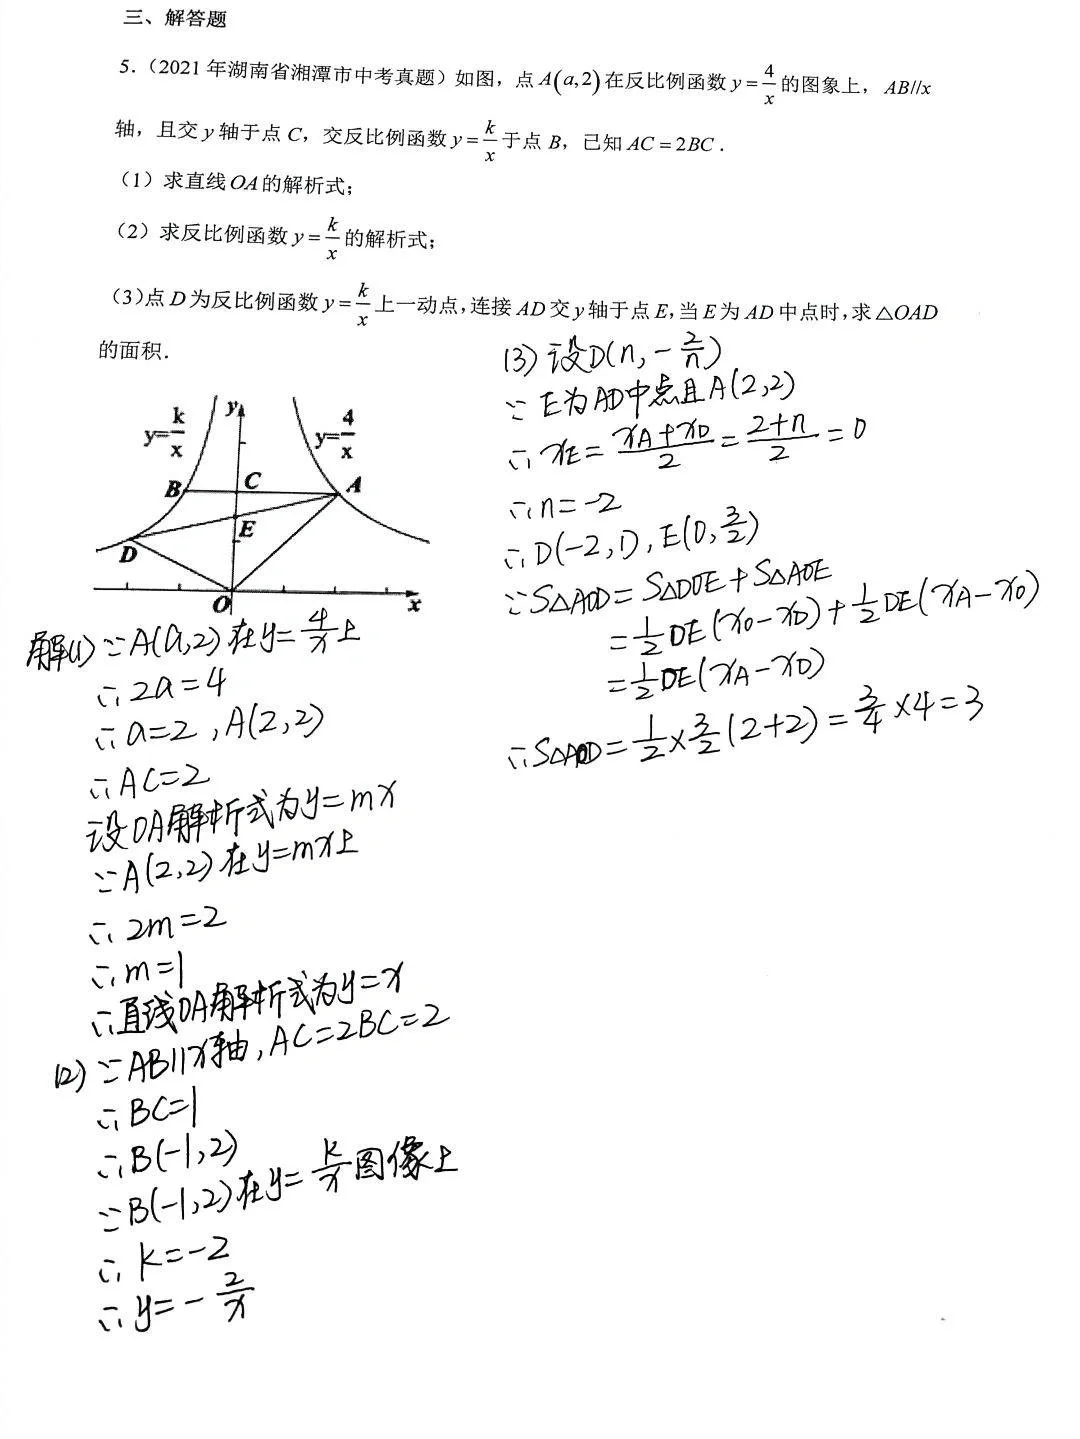 三、解答题
5.（2021年湖南省湘潭市中考真题）如图，点A(a,2)在反比例函数y=4/x的图象上，AB//x
轴，且交y轴于点C，交反比例函数y=k/x于点B，已知AC=2BC．
（1）求直线OA的解析式；
（2）求反比例函数y=k/x的解析式；
（3）点D为反比例函数y=k/x上一动点，连接AD交y轴于点E，当E为AD中点时，求△OAD
的面积．
y=k/x
y
y=4/x
B
C
A
E
D
O
x
解(1) ∵A(a,2)在y=4/x上
∴2a=4
∴a=2，A(2,2)
∴AC=2
设OA解析式为y=mx
∵A(2,2)在y=mx上
∴2m=2
∴m=1
∴直线OA解析式为y=x
(2) ∵AB∥x轴，AC=2BC=2
∴BC=1
∴B(-1,2)
∵B(-1,2)在y=k/x图像上
∴k=-2
∴y=-2/x
(3) 设D(n,-2/n)
∵E为AD中点且A(2,2)
∴xE=(xA+xD)/2=(2+n)/2=0
∴n=-2
∴D(-2,1)，E(0,3/2)
∵S△AOD=S△DOE+S△AOE
=1/2OE(xO-xD)+1/2OE(xA-xO)
=1/2OE(xA-xD)
∴S△AOD=1/2×3/2(2+2)=3/4×4=3